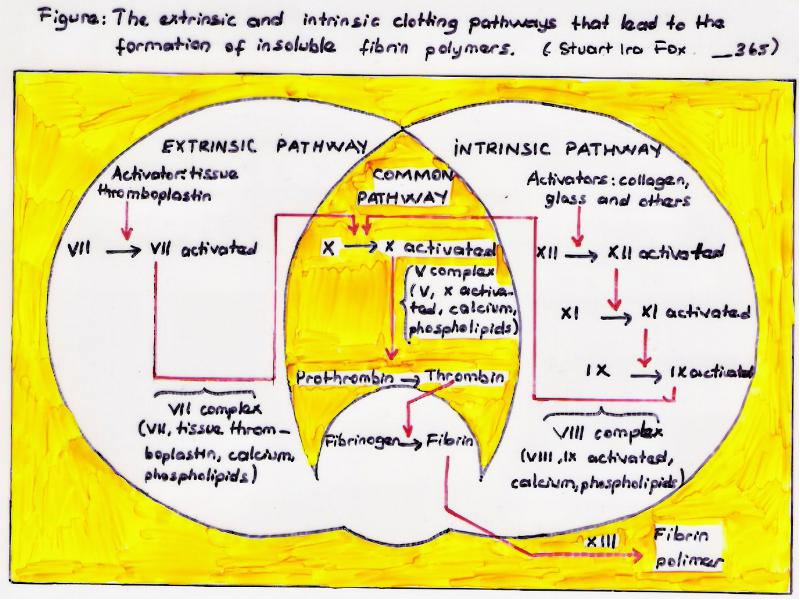 Figure: The extrinsic and intrinsic clotting pathways that lead to the
formation of insoluble fibrin polymers. (Stuart Ira Fox __365)
EXTRINSIC PATHWAY
Activator: tissue
thromboplastin
VII → VII activated
VII complex
(VII, tissue throm-
boplastin, calcium,
phospholipids)
COMMON
PATHWAY
X → X activated
V complex
(V, X activa-
ted, calcium,
phospholipids)
Prothrombin → Thrombin
Fibrinogen → Fibrin
INTRINSIC PATHWAY
Activators: collagen,
glass and others
XII → XII activated
XI → XI activated
IX → IX activated
VIII complex
(VIII, IX activated,
calcium, phospholipids)
XIII
Fibrin
polimer